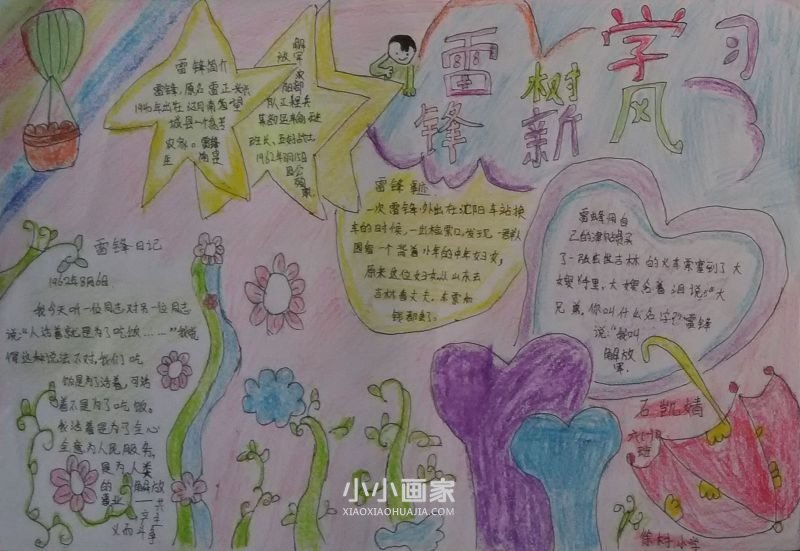 学习
雷锋
树新风
雷锋简介
雷锋,原名雷正兴
城县一个贫苦
农家。
解
放
军
班长、五好战士
雷锋日记
我今天听一位同志对另一位同志
说:“人活着就是为了吃饭……”我觉
得这种说法不对,我们吃
饭是为了活着,可活
着不是为了吃饭。
我活着是为了全心
全意为人民服务,
是为人类
的解放
事业——共
产主
义而斗争
一次雷锋外出在沈阳车站换
车的时候,一出检票口,发现一群人
围着一个背着小孩的中年妇女,
原来这位妇女从山东去
吉林看丈夫,车票和
钱都丢了。
雷锋用自
己的津贴费买
了一张去吉林的火车票塞到了大
嫂手里,大嫂含着泪说:“大
兄弟,你叫什么名字?”雷锋
说:“我叫
解放
军。
石凯婧
班
小学
小小画家
XIAOXIAOHUAJIA.COM